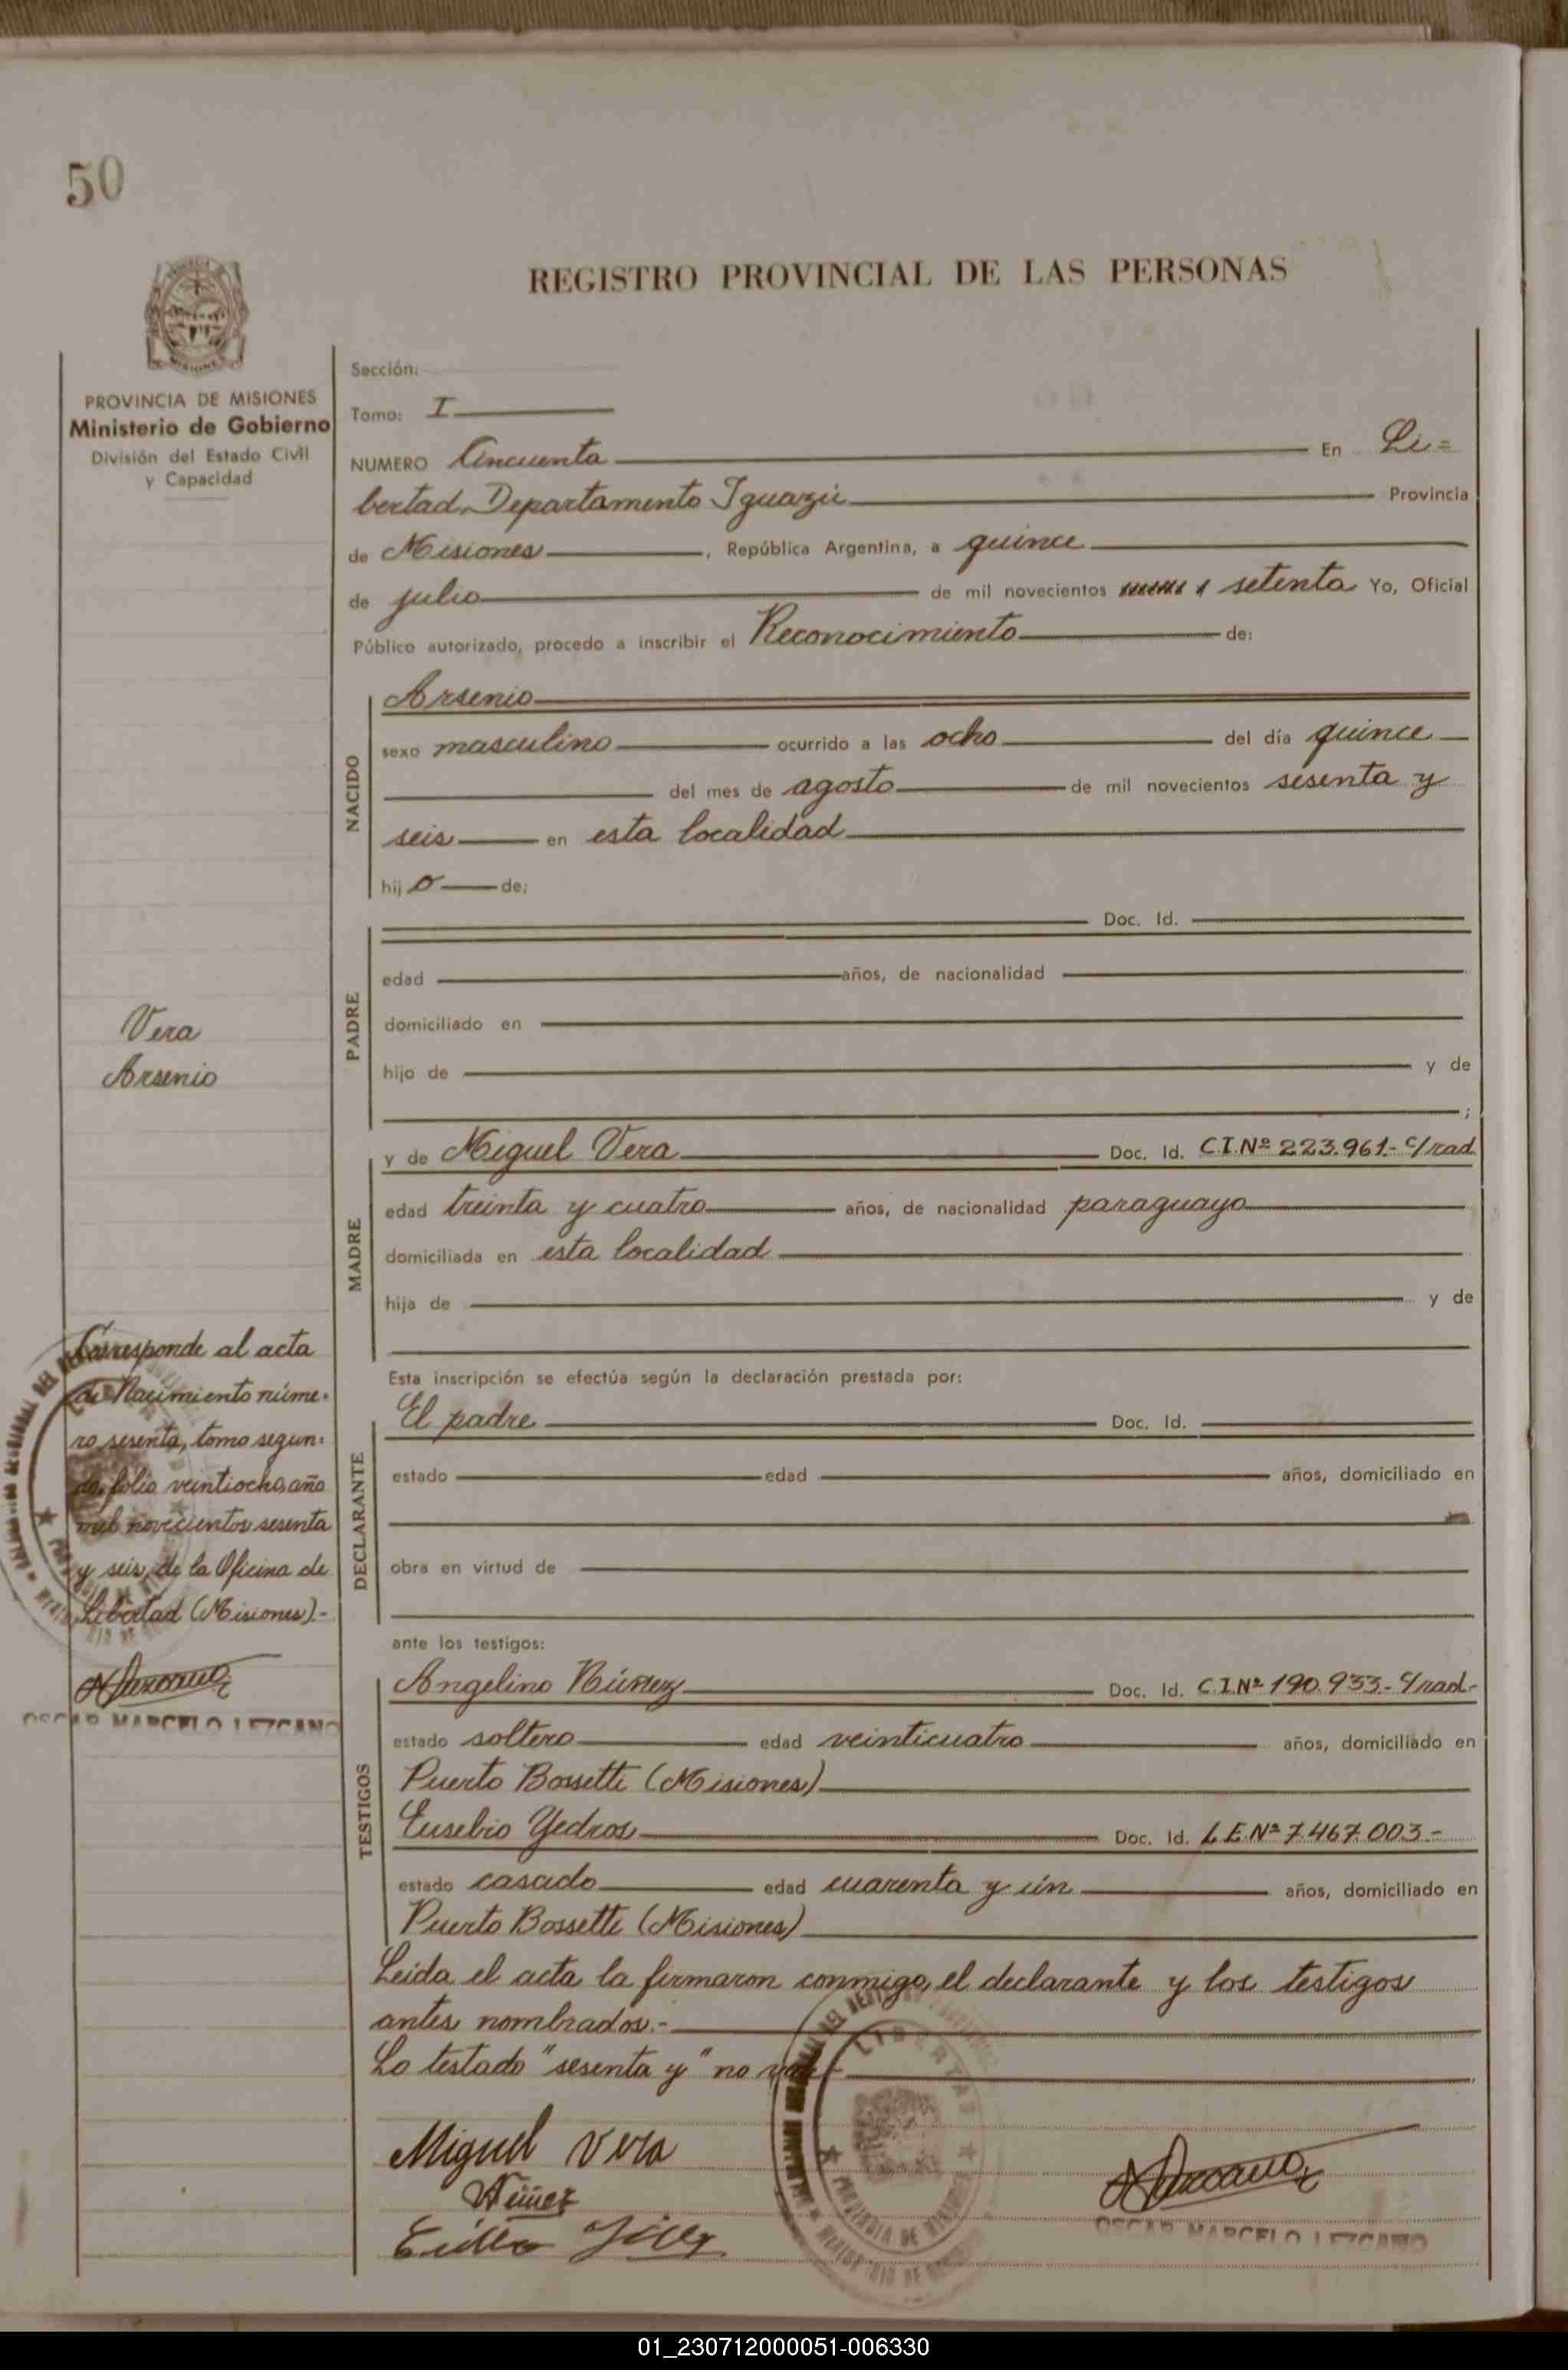 50
REGISTRO PROVINCIAL DE LAS PERSONAS
PROVINCIA DE MISIONES
Ministerio de Gobierno
División del Estado Civil
y Capacidad
Sección:
Tomo: I
NUMERO Cincuenta En Li=
bertad, Departamento Iguazú Provincia
de Misiones, República Argentina, a quince
de julio de mil novecientos setenta Yo, Oficial
Público autorizado, procedo a inscribir el Reconocimiento de:
NACIDO
Arsenio
sexo masculino ocurrido a las ocho del día quince
del mes de agosto de mil novecientos sesenta y
seis en esta localidad
hijo de;
PADRE
Doc. Id.
edad años, de nacionalidad
domiciliado en
hijo de y de
;
Vera
Arsenio
MADRE
y de Miguel Vera Doc. Id. C.I.Nº 223.961.- c/rad
edad treinta y cuatro años, de nacionalidad paraguayo
domiciliada en esta localidad
hija de y de
Esta inscripción se efectúa según la declaración prestada por:
DECLARANTE
El padre Doc. Id.
estado edad años, domiciliado en
obra en virtud de
Corresponde al acta
de Nacimiento núme-
ro sesenta, tomo segun-
do, folio veintiocho, año
mil novecientos sesenta
y seis, de la Oficina de
Libertad (Misiones).-
OSCAR MARCELO LEZCANO
ante los testigos:
TESTIGOS
Angelino Núñez Doc. Id. C.I.Nº 190.933.- c/rad.-
estado soltero edad veinticuatro años, domiciliado en
Puerto Bossetti (Misiones)
Eusebio Yedros Doc. Id. L.E.Nº 7.467.003.-
estado casado edad cuarenta y ún años, domiciliado en
Puerto Bossetti (Misiones)
Leida el acta la firmaron conmigo, el declarante y los testigos
antes nombrados.-
Lo testado "sesenta y" no vale.-
Miguel Vera
Núñez
LIBERTAD
PROVINCIA DE MISIONES
OSCAR MARCELO LEZCANO
01_230712000051-006330